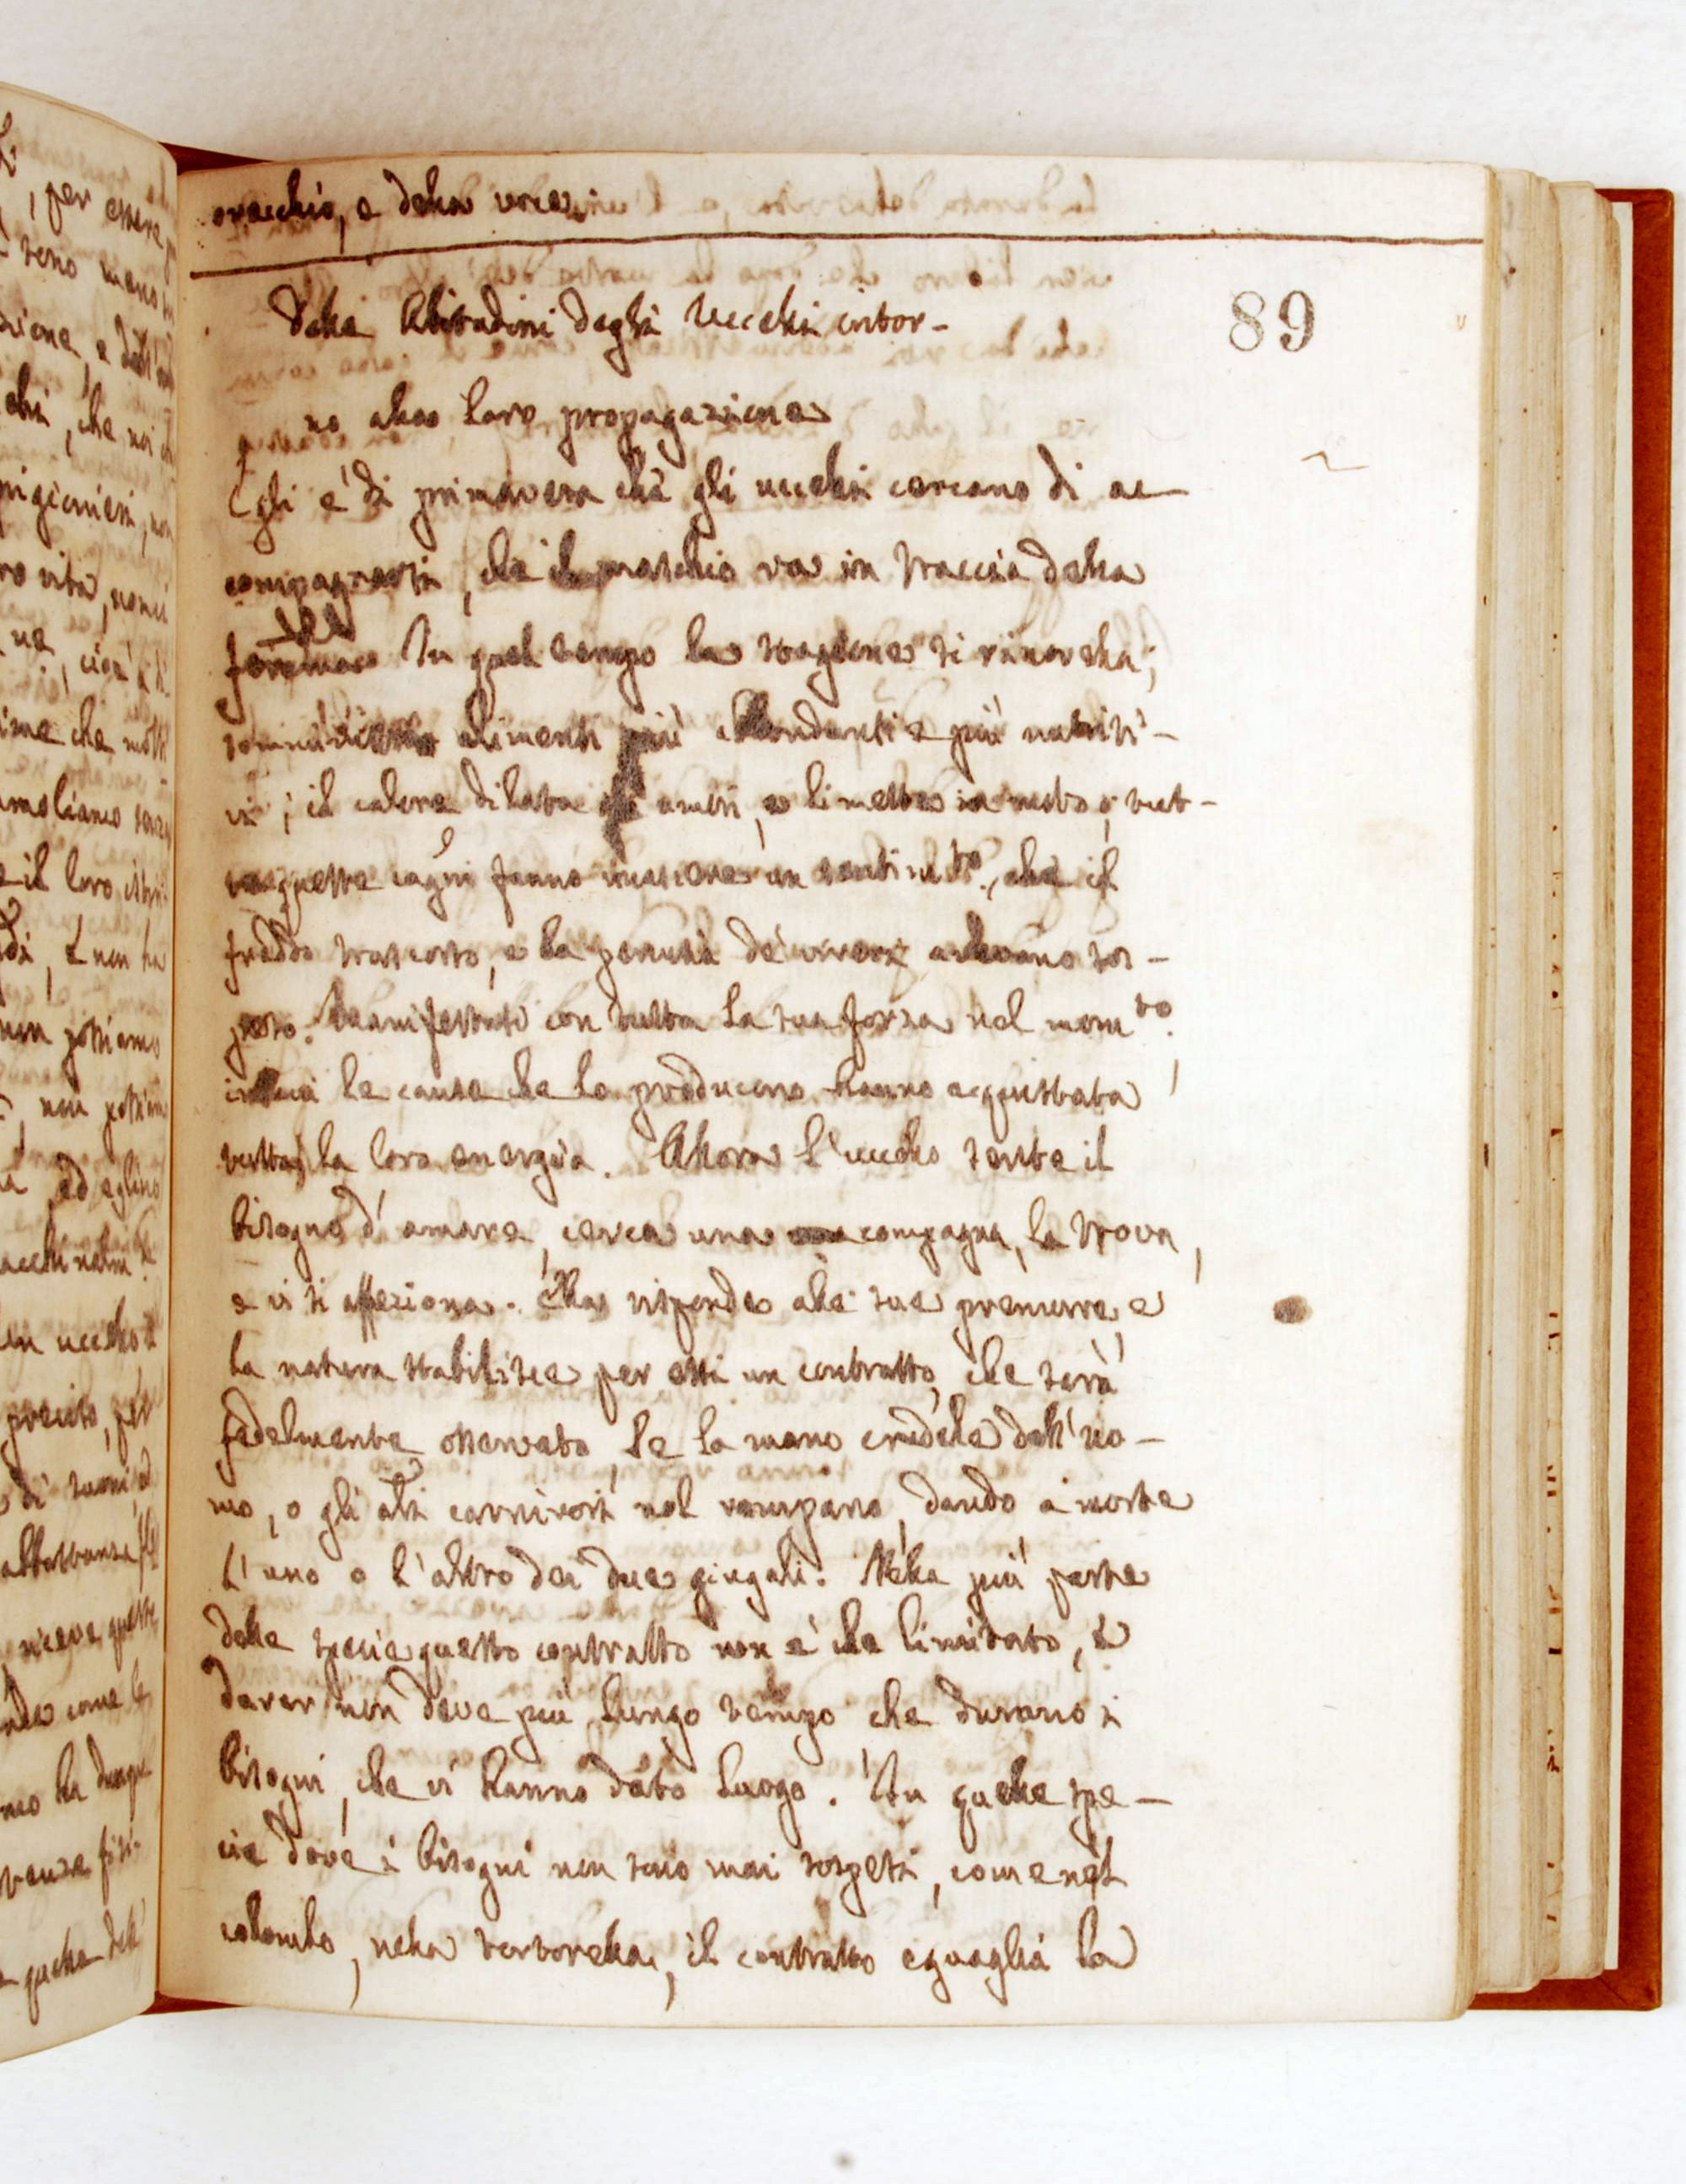 orecchio, e della voce.
89
Delle Abitudini degli Uccelli intor-
no alla loro propagazione
Egli e' di primavera che gli uccelli cercano di ac-
compagnarsi, che il maschio va in traccia della
femina. In quel tempo la stagione si rinovella;
alimenti più abbondanti e più nutriti-
vi; il calore dilata gli umori, e li mette in moto; tut-
te queste cagni fanno nascere un sentim.to, che il
freddo trascorso, e la penuria de' viveri avevano sos-
peso. Manifestasi con tutta la sua forza nel mom.to
in cui le cause che lo producono hanno acquistata
tutta la loro energia. Allora l'uccello sente il
bisogno d'amare, cerca una compagna, la trova,
e vi si affeziona. Ella risponde alle sue premurre e
la natura stabilisce per essi un contratto, che sarà
fedelmente osservato, se la mano crudele dell'uo-
mo, o gli altri carnivori nol rompano, dando a morte
l'uno o l'altro dei due giugali. Nella più parte
delle specie questo contratto non e' che limitato, e
durar non deve più lungo tempo che durano i
bisogni, che vi hanno dato luogo. In quelle spe-
cie dove i bisogni non sono mai sospesi, come nel
colombo, nella tortorella, il contratto eguaglia la